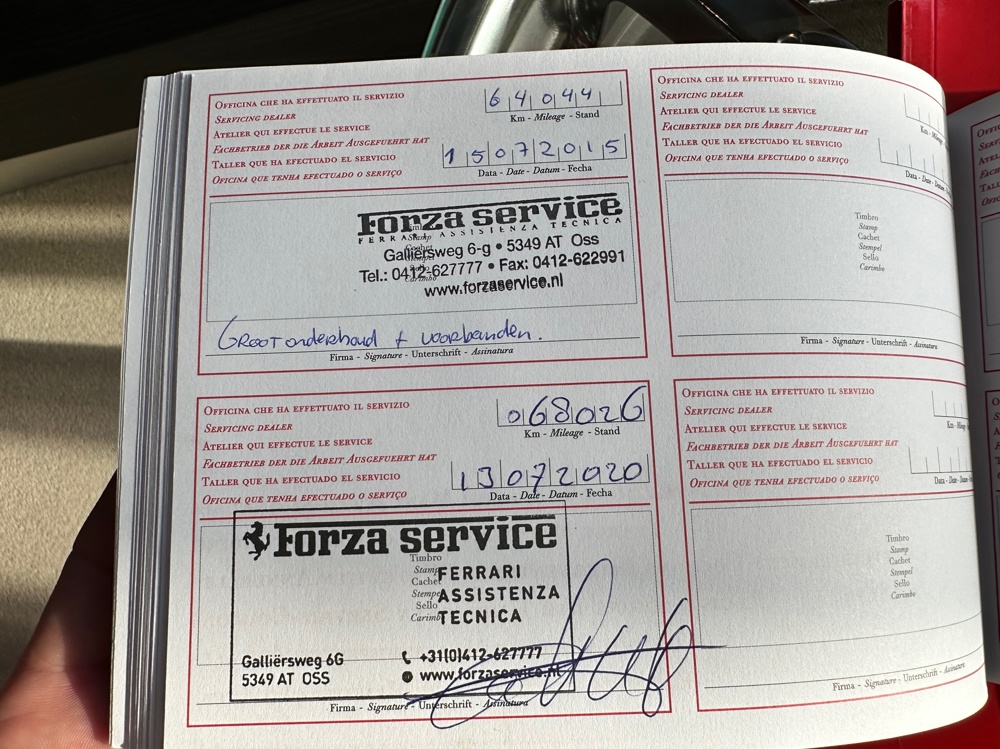 OFFICINA CHE HA EFFETTUATO IL SERVIZIO
SERVICING DEALER
ATELIER QUI EFFECTUE LE SERVICE
FACHBETRIEB DER DIE ARBEIT AUSGEFUEHRT HAT
TALLER QUE HA EFECTUADO EL SERVICIO
OFICINA QUE TENHA EFECTUADO O SERVIÇO
64044
Km - Mileage - Stand
15072015
Data - Date - Datum - Fecha
Forza service
FERRARI ASSISTENZA TECNICA
Galliërsweg 6-g • 5349 AT Oss
Tel.: 0412-627777 • Fax: 0412-622991
www.forzaservice.nl
Stamp
GROOT onderhoud + voorbanden.
Firma - Signature - Unterschrift - Assinatura
OFFICINA CHE HA EFFETTUATO IL SERVIZIO
SERVICING DEALER
ATELIER QUI EFFECTUE LE SERVICE
FACHBETRIEB DER DIE ARBEIT AUSGEFUEHRT HAT
TALLER QUE HA EFECTUADO EL SERVICIO
OFICINA QUE TENHA EFECTUADO O SERVIÇO
068026
Km - Mileage - Stand
13072020
Data - Date - Datum - Fecha
Forza service
Timbro
Stamp
Cachet
Stempel
Sello
Carimbo
FERRARI
ASSISTENZA
TECNICA
Galliërsweg 6G
5349 AT OSS
+31(0)412-627777
www.forzaservice.nl
Firma - Signature - Unterschrift - Assinatura
OFFICINA CHE HA EFFETTUATO IL SERVIZIO
SERVICING DEALER
ATELIER QUI EFFECTUE LE SERVICE
FACHBETRIEB DER DIE ARBEIT AUSGEFUEHRT HAT
TALLER QUE HA EFECTUADO EL SERVICIO
OFICINA QUE TENHA EFECTUADO O SERVIÇO
Km - Mileage
Data - Date - Datum
Timbro
Stamp
Cachet
Stempel
Sello
Carimbo
Firma - Signature - Unterschrift - Assinatura
OFFICINA CHE HA EFFETTUATO IL SERVIZIO
SERVICING DEALER
ATELIER QUI EFFECTUE LE SERVICE
FACHBETRIEB DER DIE ARBEIT AUSGEFUEHRT HAT
TALLER QUE HA EFECTUADO EL SERVICIO
OFICINA QUE TENHA EFECTUADO O SERVIÇO
Km - Mileage
Data - Date - Datum
Timbro
Stamp
Cachet
Stempel
Sello
Carimbo
Firma - Signature - Unterschrift - Assinatura